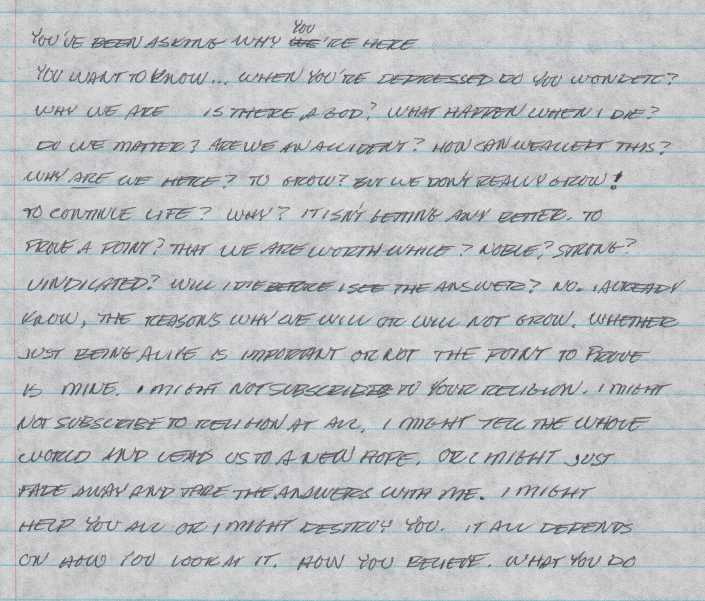 YOU'VE BEEN ASKING WHY YOU WE'RE HERE
YOU WANT TO KNOW... WHEN YOU'RE DEPRESSED DO YOU WONDER?
WHY WE ARE IS THERE A GOD? WHAT HAPPEN WHEN I DIE?
DO WE MATTER? ARE WE AN ACCIDENT? HOW CAN WE ACCEPT THIS?
WHY ARE WE HERE? TO GROW? BUT WE DON'T REALLY GROW!
TO CONTINUE LIFE? WHY? IT ISN'T GETTING ANY BETTER. TO
PROVE A POINT? THAT WE ARE WORTHWHILE? NOBLE? STRONG?
VINDICATED? WILL I DIE BEFORE I SEE THE ANSWER? NO. I ALREADY
KNOW, THE REASONS WHY WE WILL OR WILL NOT GROW. WHETHER
JUST BEING ALIVE IS IMPORTANT OR NOT THE POINT TO PROVE
IS MINE. I MIGHT NOT SUBSCRIBE TO YOUR RELIGION. I MIGHT
NOT SUBSCRIBE TO RELIGION AT ALL. I MIGHT TELL THE WHOLE
WORLD AND LEAD US TO A NEW HOPE. OR I MIGHT JUST
FADE AWAY AND TAKE THE ANSWERS WITH ME. I MIGHT
HELP YOU ALL OR I MIGHT DESTROY YOU. IT ALL DEPENDS
ON HOW YOU LOOK AT IT. HOW YOU BELIEVE. WHAT YOU DO